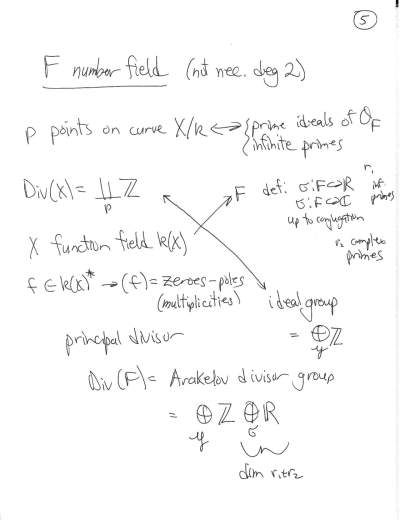 5
F number field (not nec. deg 2)
p points on curve X/k ↔ {prime ideals of O_F
{infinite primes
Div(X) = ⨆_p ℤ
F def: σ: F↪ℝ r₁ inf. primes
σ: F↪ℂ
up to conjugation
r₂ complex primes
X function field k(X)
f ∈ k(X)* → (f) = zeroes - poles
(multiplicities)
ideal group
principal divisor
= ⊕_𝔭 ℤ
Div(F) = Arakelov divisor group
= ⊕_𝔭 ℤ ⊕_σ ℝ
dim r₁+r₂